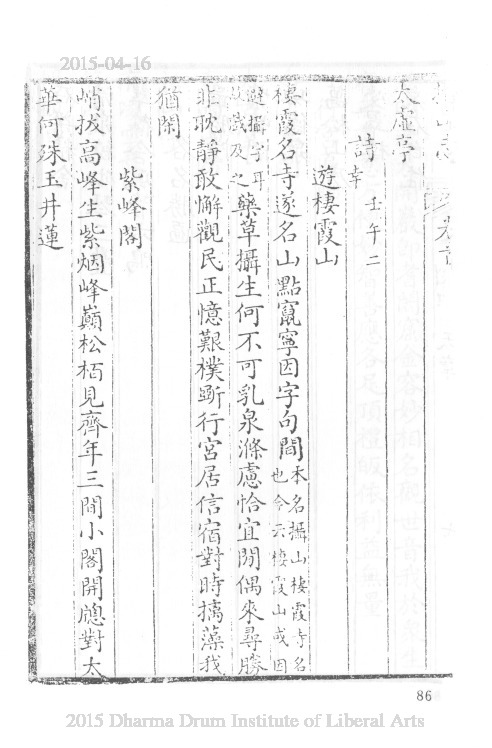 2015-04-16
太虛亭
詩 壬午二幸
遊棲霞山
棲霞名寺遂名山點竄寧因字句間本名攝山棲霞寺名也今云棲霞山或因
避攝字耳故戲及之藥草攝生何不可乳泉滌慮恰宜閒偶來尋勝
非耽靜敢懈觀民正憶艱樸斵行宮居信宿對時摛藻我
猶閑
紫峰閣
峭拔高峰生紫烟峰巔松栢見齊年三間小閣開牕對太
華何殊玉井蓮
86
2015 Dharma Drum Institute of Liberal Arts